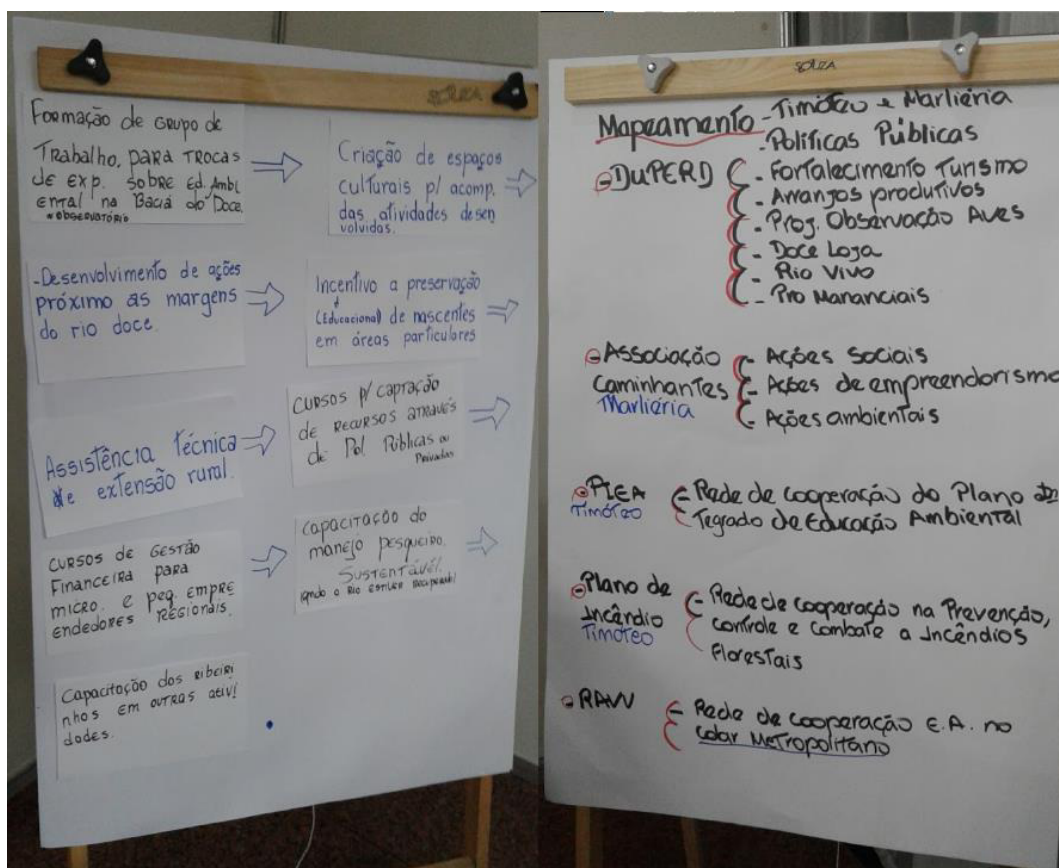 SOUZA
Formação de Grupo de
Trabalho, para trocas
de exp. sobre Ed. Ambi
ental na Bacia do Doce.
*OBSERVATÓRIO
Criação de espaços
culturais p/ acomp.
das atividades desen
volvidas.
-Desenvolvimento de ações
próximo as margens
do rio doce.
Incentivo a preservação
(Educacional) de nascentes
em áreas particulares
Assistência Técnica
e extensão rural.
Cursos p/ captação
de recursos através
de Pol. Públicas ou
Privadas
Cursos de Gestão
Financeira para
micro. e peq. empre
endedores regionais.
Capacitação do
manejo pesqueiro.
Sustentável.
Capacitação dos ribeiri
nhos em outras ativi
dades.
SOUZA
Mapeamento - Timóteo e Marliéria
- Políticas Públicas
- DuPERD - Fortalecimento Turismo
- Arranjos produtivos
- Proj. Observação Aves
- Doce Loja
- Rio Vivo
- Pro Mananciais
- Associação - Ações Sociais
Caminhantes - Ações de empreendorismo
Marliéria - Ações ambientais
- PIEA - Rede de cooperação do Plano In
Timóteo tegrado de Educação Ambiental
- Plano de - Rede de cooperação na Prevenção,
Incêndio controle e combate a Incêndios
Timóteo Florestais
- Rede de cooperação E.A. no
colar Metropolitano